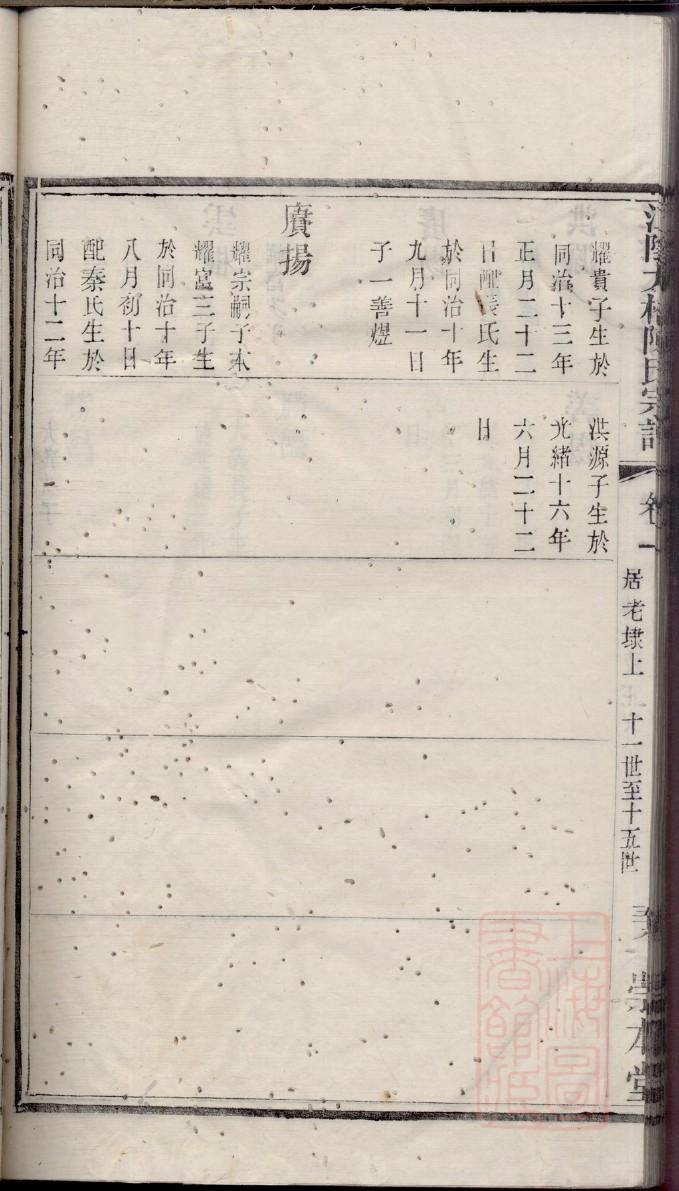 耀貴子生於
同治十三年
正月二十二
日配張氏生
於同治十年
九月十一日
子一善煜
賡揚
耀宗嗣子本
耀富三子生
於同治十年
八月初十日
配秦氏生於
同治十二年
洪源子生於
光緒十六年
六月二十二
日
陳氏宗譜
卷一
居老埭上
十一世至十五世
崇本堂
上海圖書館藏